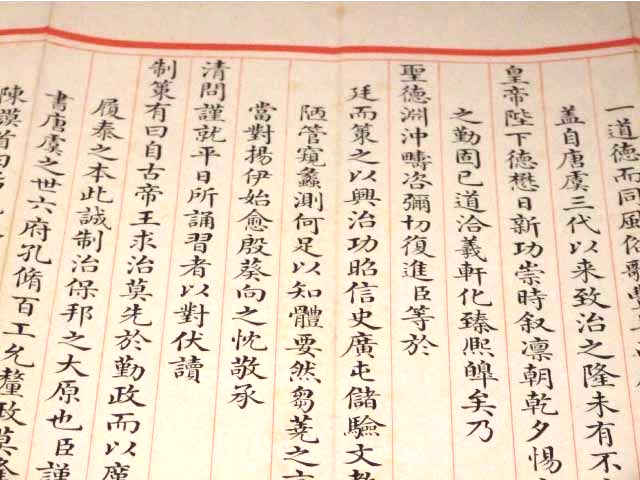 一道德而同風俗
蓋自唐虞三代以来致治之隆未有不
皇帝陛下德懋日新功崇時叙凛朝乾夕惕
之勤固已道洽義軒化臻熙皥矣乃
聖德淵沖疇咨彌切復進臣等於
廷而策之以興治功昭信史廣屯儲驗文教
陋管窺蠡測何足以知體要然芻蕘之言
當對揚伊始愈殷葵向之忱敬承
清問謹就平日所誦習者以對伏讀
制策有曰自古帝王求治莫先於勤政而以廣
履泰之本此誠制治保邦之大原也臣謹
書唐虞之世六府孔脩百工允釐政莫
陳謨首曰